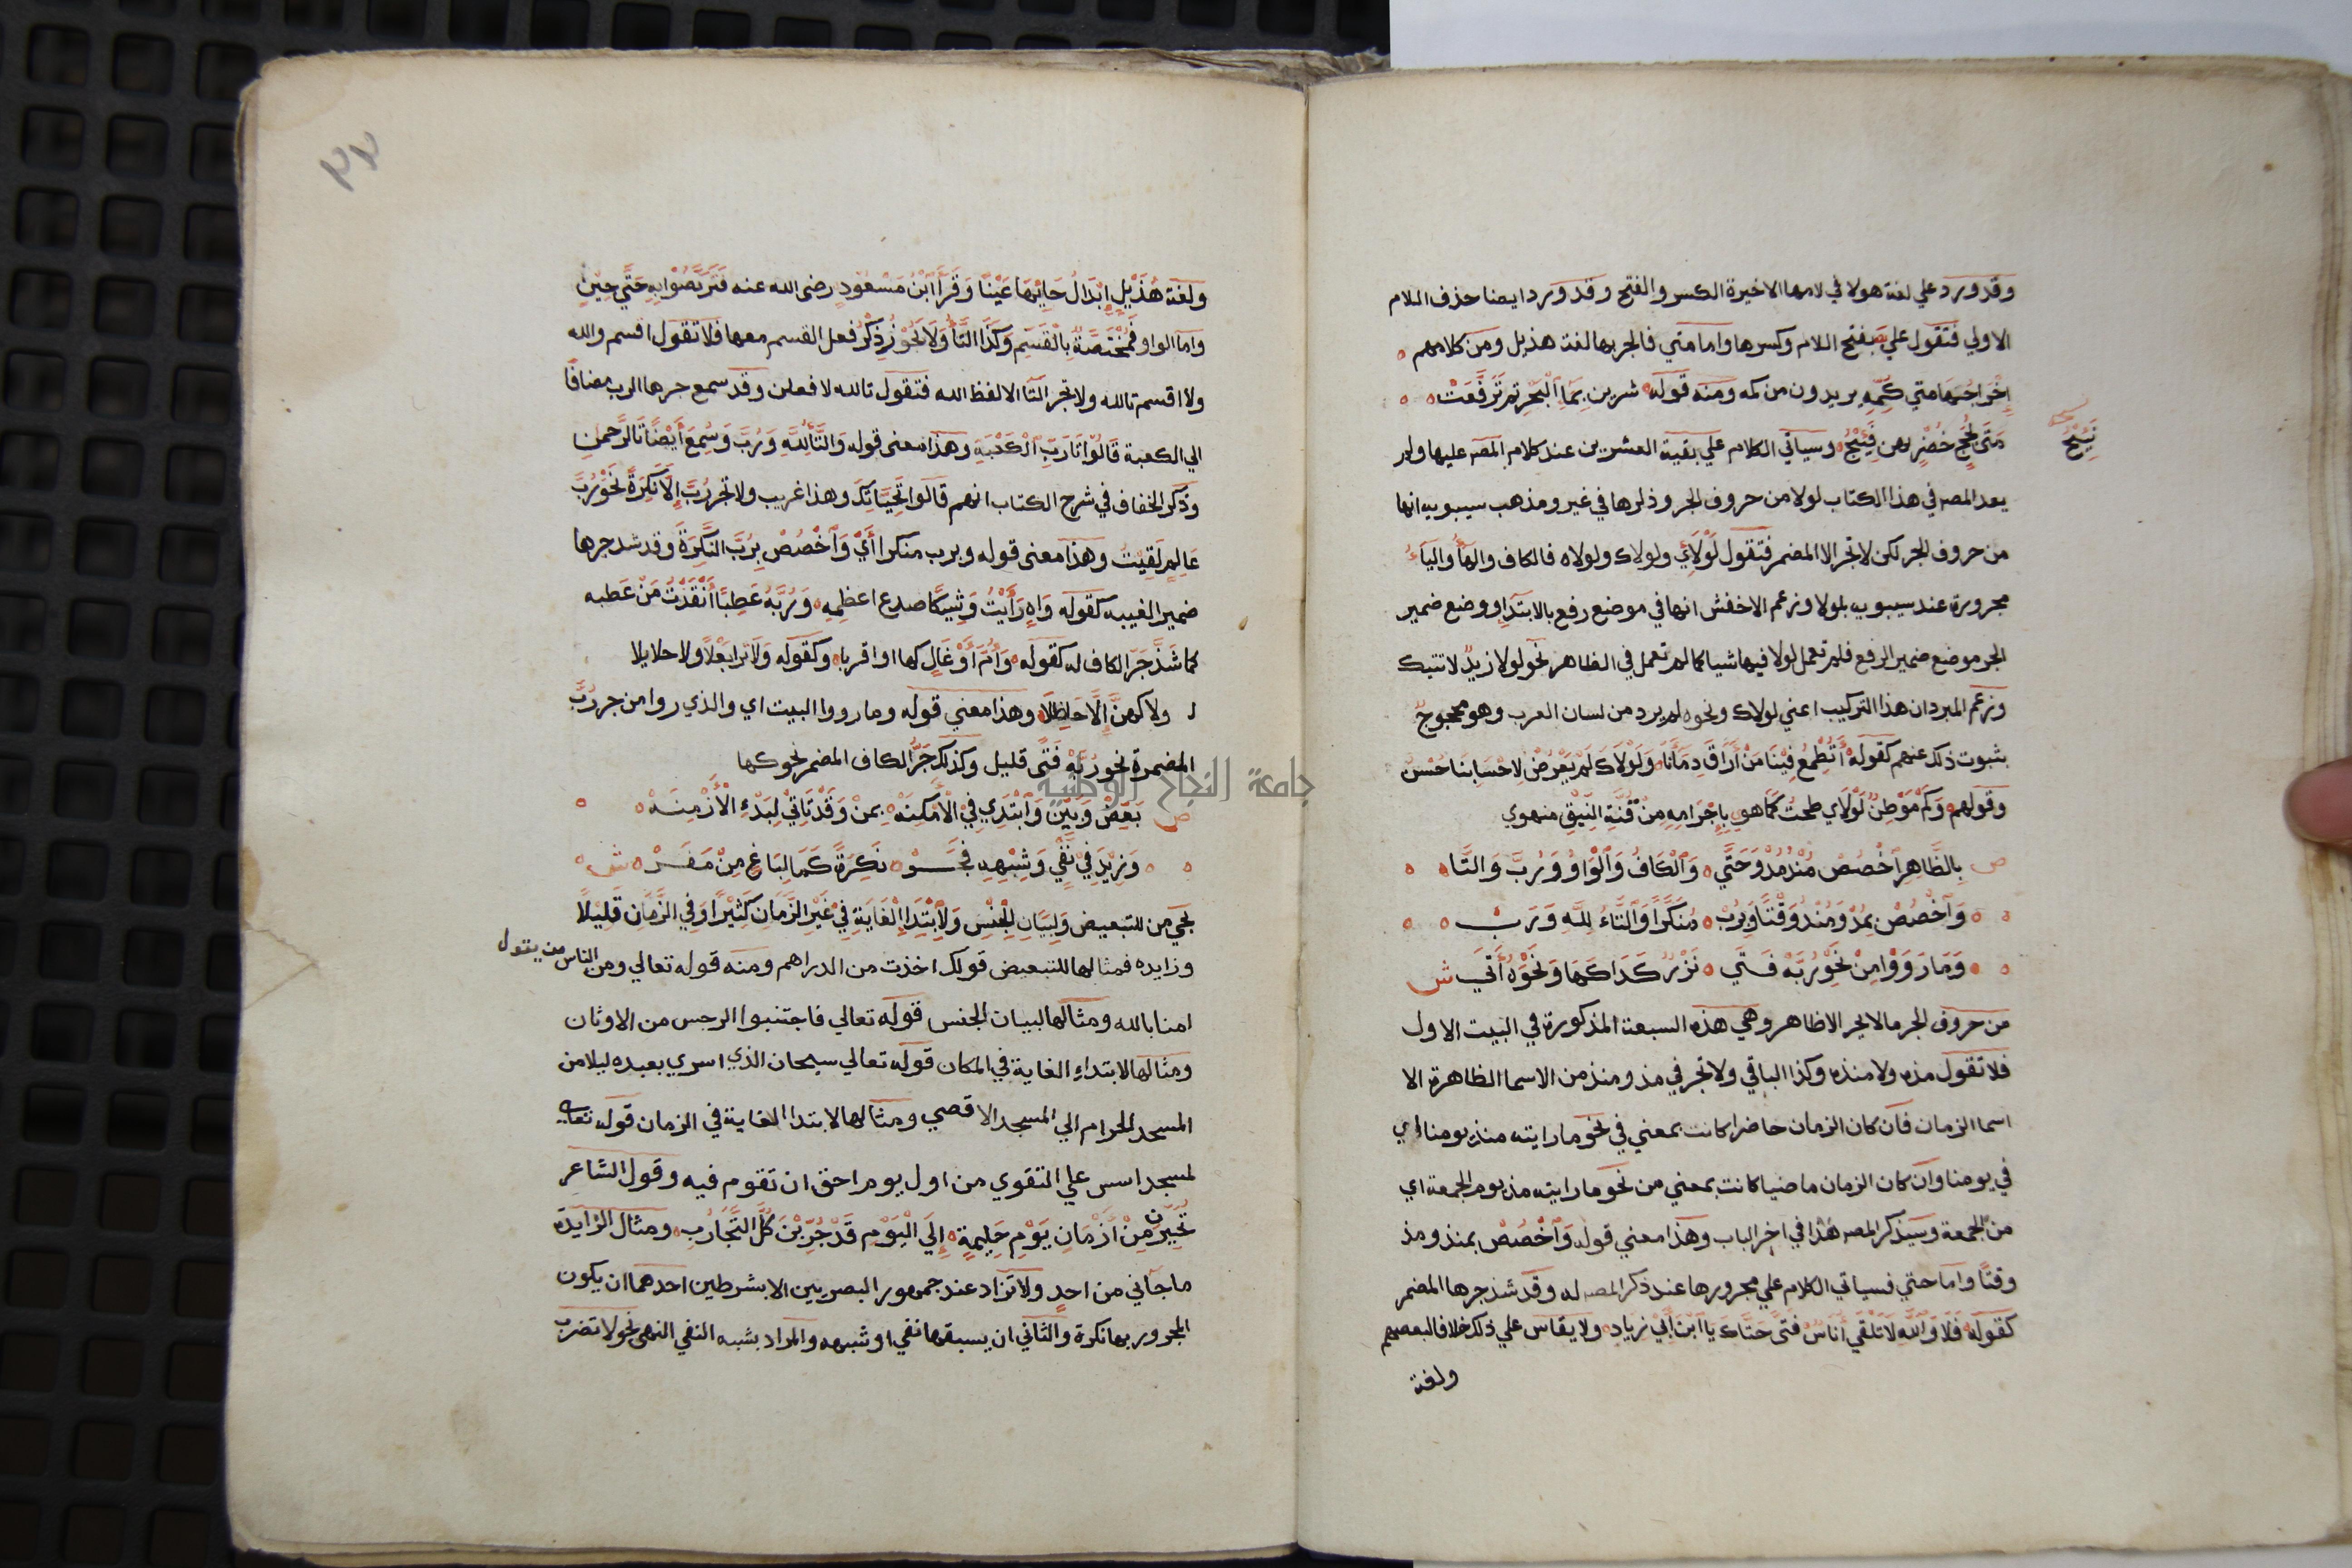 وقد ورد علي لغة هولا في لامها الاخيرة الكسر والفتح وقد ورد ايضا حذف اللام
الاولي فتقول عل بفتح اللام وكسرها واما متي فالجر بها لغة هذيل ومن كلامهم
اِخْرَاجُهَا متي كُمِّه يريدون من كمه ومنه قوله شربن بِمَاءِ الْبَحْرِ ثم تَرَفَّعَتْ
مَتَى لُجَجٍ خُضْرٍ لهن نَئِيْجُ وسياتي الكلام علي بقية العشرين عند كلام المصـ عليها ولم
نَئِيْجُ
يعد المصـ في هذا الكتاب لولا من حروف الجر وذكرها في غيره ومذهب سيبويه انها
من حروف الجر لكن لا تجر الا المضمر فتقول لَوْلَايَ ولولاك ولولاه فالكاف والهاء والياء
مجرورة عند سيبويه بلولا وزعم الاخفش انها في موضع رفع بالابتداء ووضع ضمير
الجر موضع ضمير الرفع فلم تعمل لولا فيها شيا كما لم تعمل في الظاهر نحو لولا زيدٌ لاتيتك
وزعم المبرد ان هذا التركيب اعني لولاك ونحوه لم يرد من لسان العرب وهو محجوج
بثبوت ذلك عنهم كقوله أَتُطْمِعُ فِيْنَا مَنْ أَرَاقَ دِمَاءَنَا وَلَوْلَاكَ لَمْ يَعْرِضْ لِاحْسَابِنَا حَسَنْ
وقولهم وَكَمْ مَوْطِنٍ لَوْلَاي طحت كَمَا هوي بِاَجْرَامِهِ مِنْ قُنَّةِ النِّيْقِ منهوي
ص بِالظَّاهِرِ اخْصُصْ مُنْذُ مُذْ وَحَتَّي وَالْكَافُ وَالْوَاوُ وَرُبَّ وَالتَّا
وَاخْصُصْ بِمُذْ وَمُنْذُ وَقْتًا وَبِرُبْ مُنَكَّرًا وَالتَّاءُ لِلَّهِ وَرَبْ
وَمَا رَوَوْا مِنْ نَحْوِ رُبَّهُ فَتَي نَزْرٌ كَذَا كَهَا وَنَحْوُهُ أَتَي ش
من حروف الجر ما لا يجر الا ظاهر وهي هذه السبعة المذكورة في البيت الاول
فلا تقول مذه ولا منذه وكذا الباقي ولا تجر في مذ ومنذ من الاسما الظاهرة الا
اسما الزمان فان كان الزمان حاضرا كانت بمعني في نحو ما رايته منذ يومنا اي
في يومنا وان كان الزمان ماضيا كانت بمعني من نحو ما رايته مذ يوم الجمعة اي
من الجمعة وسيذكر المصـ هذا في اخر الباب وهذا معني قوله وَاخْصُصْ بمنذ ومذ
وقتًا واما حتي فسياتي الكلام علي مجرورها عند ذكر المصـ له وقد شذ جرها المضمر
كقوله فَلَا وَاللهِ لَا تَلْقَي أُنَاسٌ فَتًى حَتَّاكَ يا ابْنَ أَبِي زياد ولا يقاس علي ذلك خلافا لبعضهم
ولغة
٢٧
ولغة هُذَيْلٍ إِبْدَالُ حَائِهَا عَيْنًا وَقَرَأَ ابْنُ مَسْعُوْدٍ رضي الله عنه فَتَرَبَّصُوْا بِهِ حَتَّي حِيْنٍ
واما الواو فَمُخْتَصَّةٌ بالْقَسَمِ وَكَذَا التَّاءُ وَلَا يَجُوْزُ ذِكْرُ فعل القسم معها فلا تقول اقسم والله
ولا اقسم تالله ولا تجر التا الا لفظ الله فتقول تالله لافعلن وقد سمع جرها الرب مضافًا
الي الكعبة قَالُوْا تَرَبِّ الْكَعْبَةِ وهذا معنى قوله وَالتَّاءُ لِلَّهِ وَرَبَّ وَسُمِعَ أَيْضًا تَالرَّحْمنِ
وذكر الخفاف في شرح الكتاب انهم قالوا تَحَيَاتِكَ وهذا غريب ولا تجر رُبَّ إِلَّا نَكِرَةً نَحْوُ رُبَّ
عَالِمٍ لَقِيْتُ وهذا معنى قوله وبرب منكرا أَيْ وَاخْصُصْ بِرُبَّ النَّكِرَةَ وقد شد جرها
ضمير الغيبه كقوله وَاهٍ رَأَيْتُ وَشِيْكًا صدع اعظمِهِ وَرُبَّهُ عَطِبًا أَنْقَذْتُ مَنْ عَطبه
كما شَذَّ جَرّ الكاف له كقوله وَأُمّ أَوْ عَالٍ كها او اقربا وكقوله وَلَا تَرَا بَعْلًا ولا حلايلا
ولا كهنَّ إِلَّا حَاظِلَا وهذا معني قوله وما رووا البيت اي والذي روا من جر رُبَّ
المضمرة نحو رُبَّهُ فَتًى قليل وكذلك جَرُّ الكاف المضمر نحو كها
ص بَعِّضْ وَبَيِّنْ وَابْتَدِي فِي الْأَمْكِنَهْ بِمِنْ وَقَدْ تَاتِيْ لِبَدْءِ الْأَزْمِنَهْ
وَزِيْدَ فِيْ نَفْيٍ وَشِبْهِهِ فَجَرّْ نَكِرَةً كَمَا لِبَاغٍ مِنْ مَفَرّْ ش
تجي من للتبعيض وَلِبَيَانِ الْجِنْسِ وَلِابْتِدَاءِ الْغَايَةِ فِيْ غَيْرِ الزَّمَانِ كَثِيْرًا وَفِي الزَّمَانِ قَلِيْلًا
وزايده فمثالها للتبعيض قولك اخذت من الدراهم ومنه قوله تعالي ومن الناس من يقول
امنا بالله ومثالها لبيان الجنس قوله تعالي فاجتنبوا الرجس من الاوثان
ومثالها لابتداءِ الغاية في المكان قوله تعالي سبحان الذي اسري بعبده ليلا من
المسجد الحرام الي المسجد الاقصي ومثالها لابتدا الغاية في الزمان قوله تعالي
لمسجد اسس علي التقوي من اول يوم احق ان تقوم فيه وقول الشاعر
تُخُيِّرْنَ مِنْ أَزْمَانِ يَوْمِ حَلِيمَةٍ إِلَي الْيَوْمِ قَدْ جُرِّبْنَ كُلَّ التَّجَارُبِ ومثال الزايدة
ما جآني من احدٍ ولا تزاد عند جمهور البصريين الا بشرطين احدهما ان يكون
المجرور بها نكرة والثاني ان يسبقها نفي او شبهه والمراد بشبه النفي النهي نحو لا تضرب
جامعة النجاح الوطنية